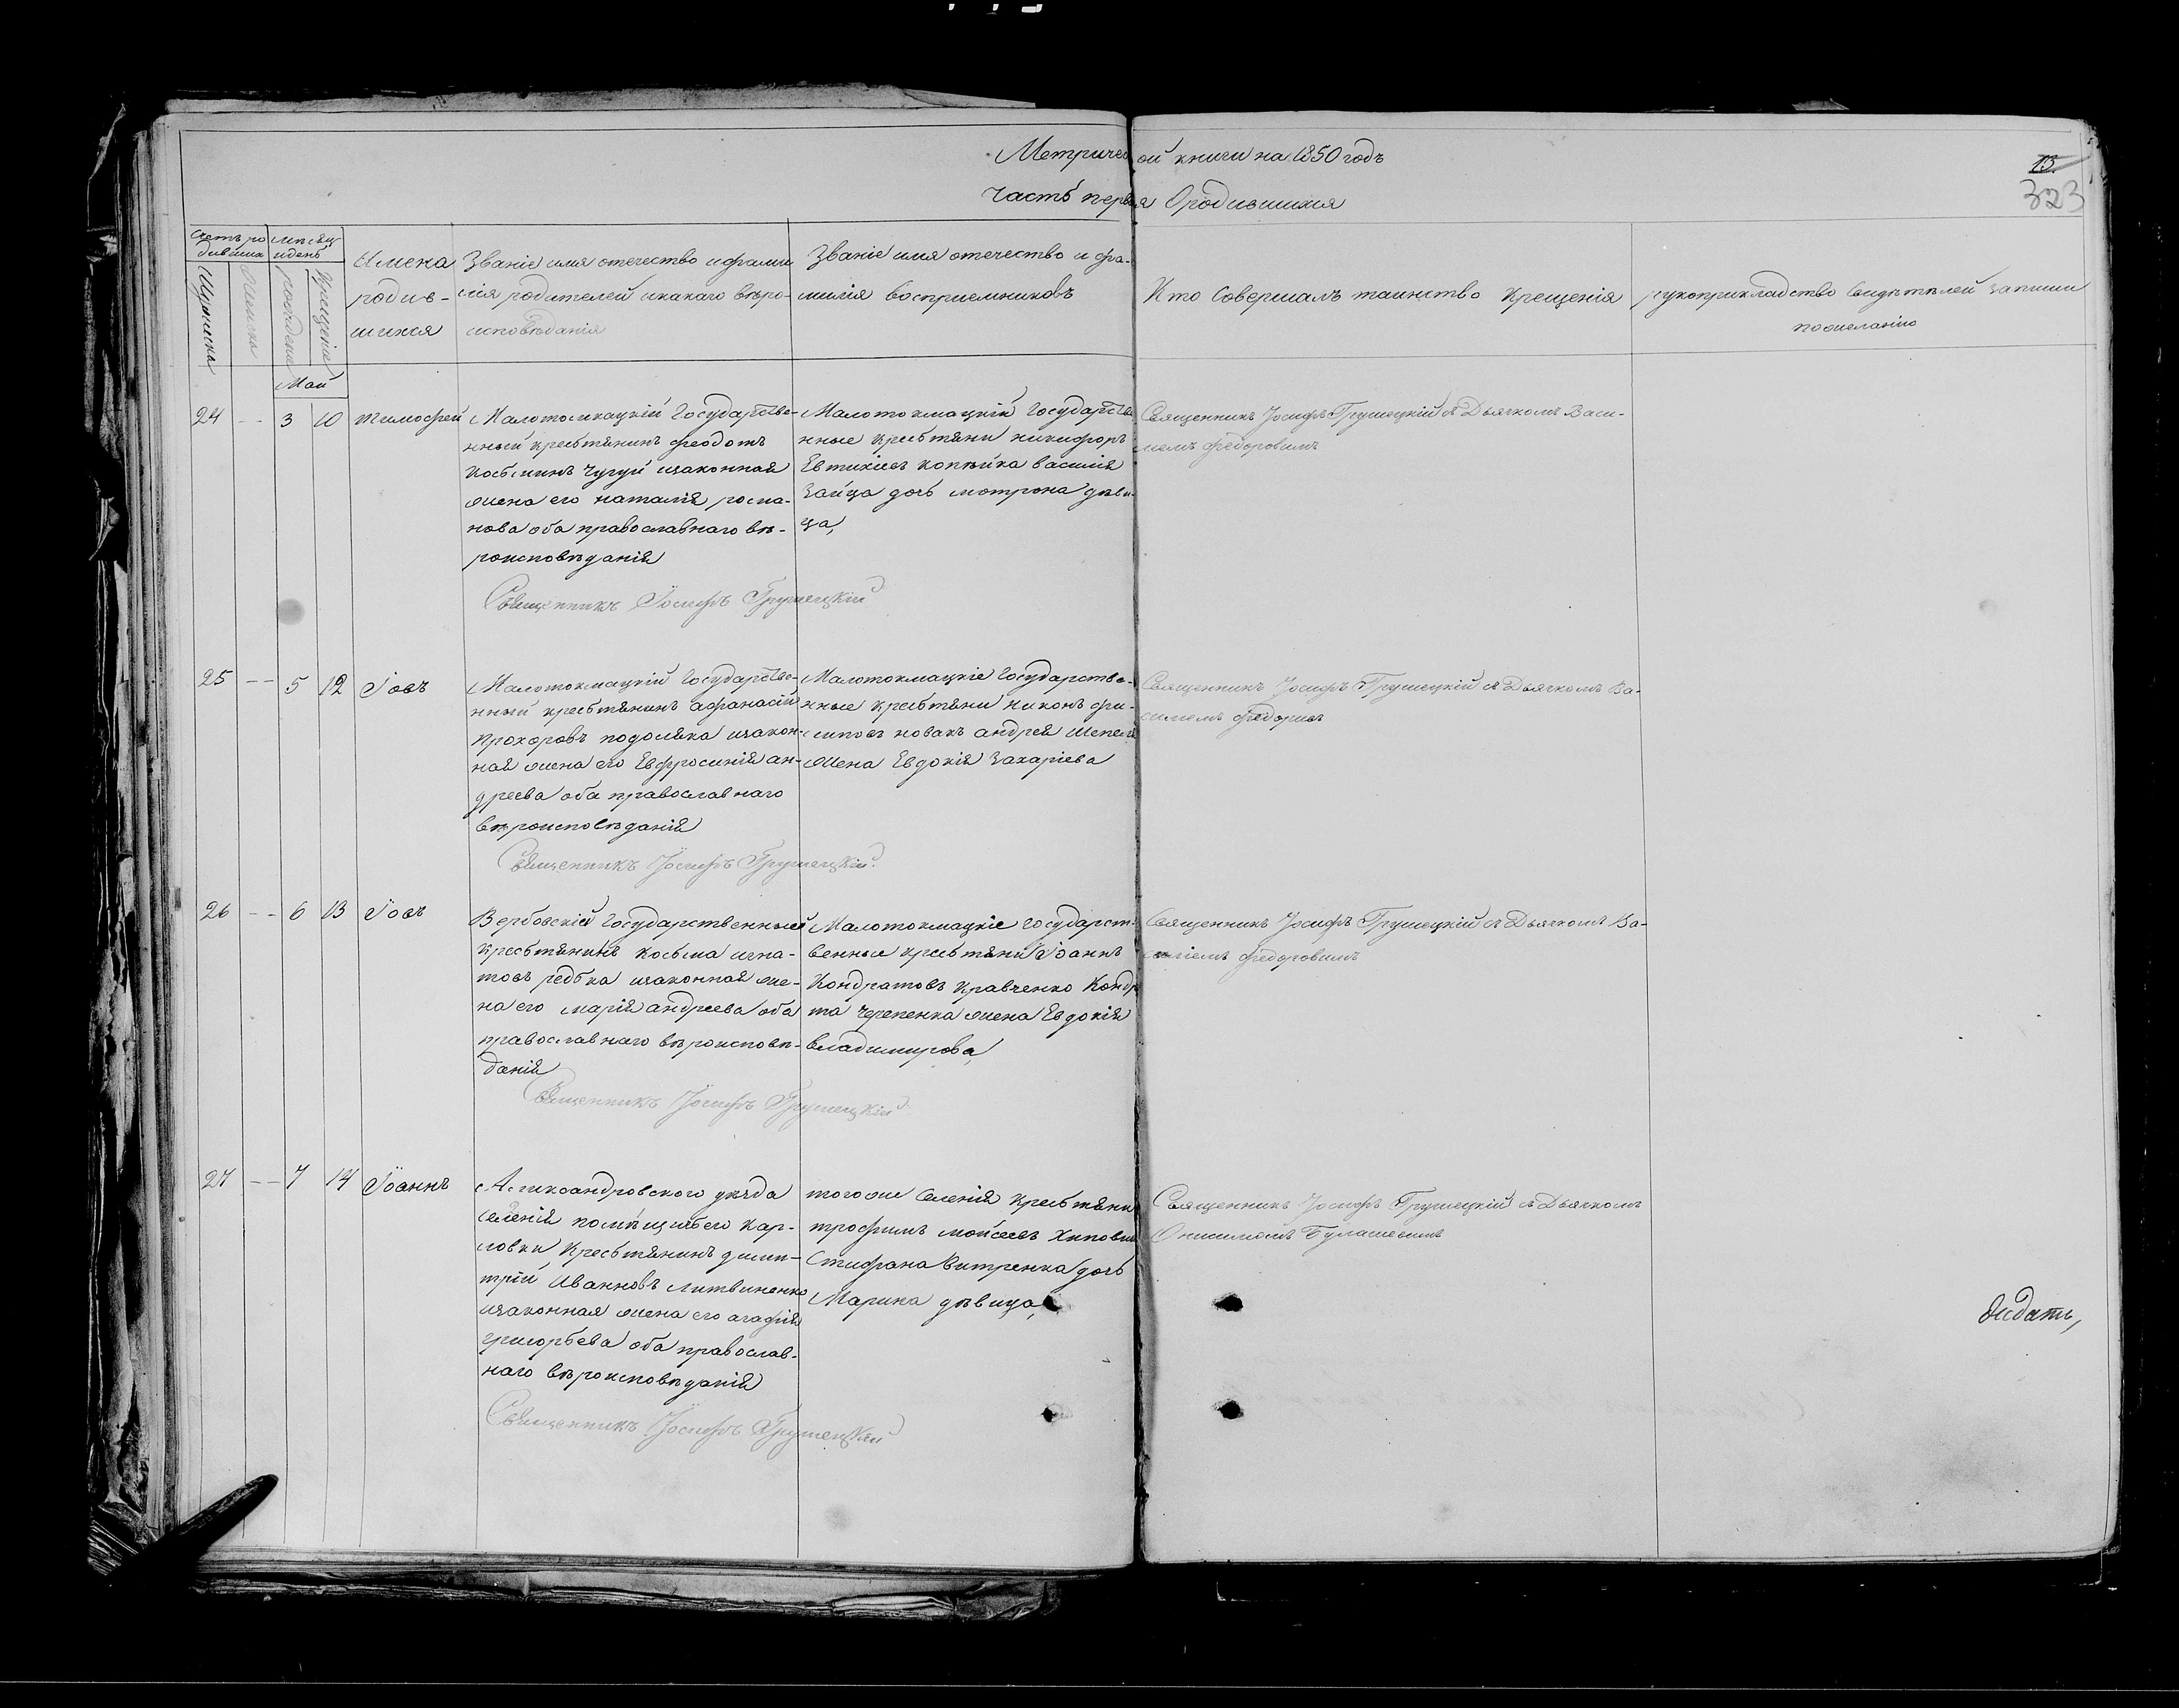 Метрической книги на 1850 годъ
Часть первая О родившихся
13.
323
Счетъ родившихся
мѣсяцъ и день
Мужеска
Женска
рожденія
Крещенія
Имена родив-
шихся
Званіе имя отечество и фами-
лія родителей и какаго вѣро-
исповѣданія
Званіе имя отечество и фа-
милія восприемниковъ
Кто Совершалъ таинство Крещенія
рукоприкладство Свидѣтелей записи
по желанію
Май
24 -- 3 10 Тимофей
Малотокмацкій Государстве-
нный крестьянинъ феодотъ
Косминъ Чугуй изаконная
жена его наталія рома-
нова оба православнаго вѣ-
роисповѣданія
Священникъ Іосифъ Грушецкій
Малотокмацкіи Государстве
нные крестьяни никифоръ
Евтихіевъ копѣйка василія
Зайца дочь мотрона дѣви-
ца,
Священникъ Іосифъ Грушецкій съ Дьячкомъ Васи-
лемъ Федоровимъ
25 -- 5 12 Іовъ
Малотокмацкій Государстве-
нный крестьянинъ афанасій
Прохоровъ подоляка изакон-
ная жена его Евфросинія ан-
дреева оба православнаго
вѣроисповѣданія
Священникъ Іосифъ Грушецкій.
Малотокмацкіе Государстве-
нные крестьяни никонъ фи-
липовъ новакъ андрея Шепеля
Жена Евдокія Захаріева
Священникъ Іосифъ Грушецкій съ Дьячкомъ Ва-
силіемъ
26 -- 6 13 Іовъ
Вербовскій Государственный
Крестьянинъ Косьма игна-
товъ редька изаконная же-
на его марія андреева оба
православнаго вѣроисповѣ-
данія
Священникъ Іосифъ Грушецкій
Малотокмацкіе Государст-
венные крестьяни Іоаннъ
Кондратовъ Кравченко Кондра
та Черепенка жена Евдокія
владимирова,
Священникъ Іосифъ Грушецкій съ Дьячкомъ Ва-
силіемъ Федоровимъ
27 -- 7 14 Іоаннъ
Александровского уѣзда
Селенія помѣщичьего Кар-
ловки, Крестьянинъ дими-
трій Ивановъ литвиненко
изаконная жена его агафія
григорьева оба православ-
наго вѣроисповѣданія
Священникъ Іосифъ Грушецкій
тогоже Селенія Крестьяни
трофимъ мойсеевъ
Стифана Витренка дочь
Марина дѣвица,
Священникъ Іосифъ Грушецкій съ Дьячкомъ
Онисимомъ